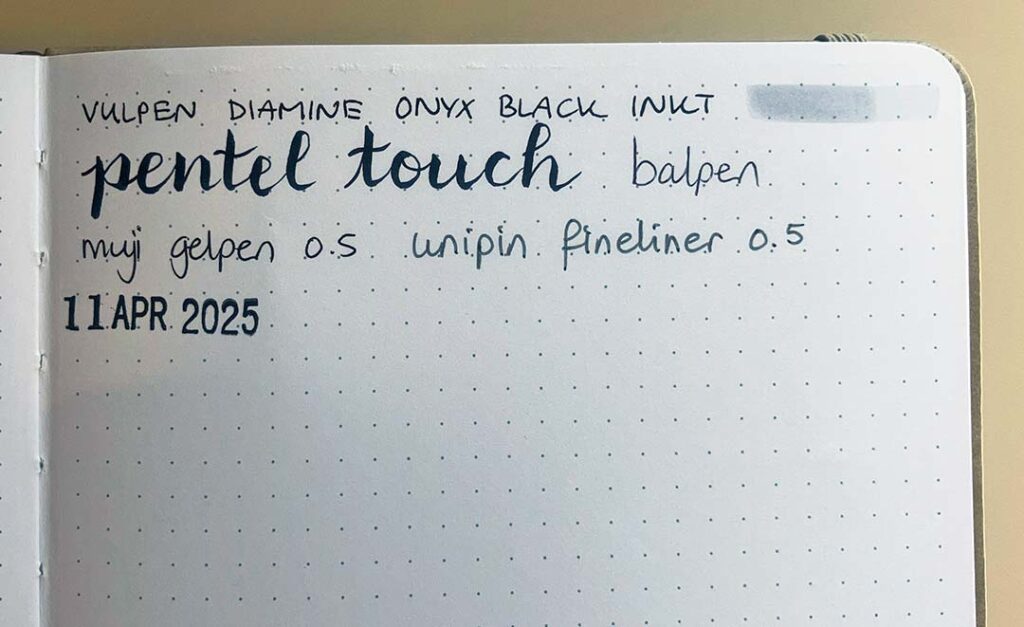 VULPEN DIAMINE ONYX BLACK INKT
pentel touch balpen
muji gelpen 0.5 unipin fineliner 0.5
11 APR 2025